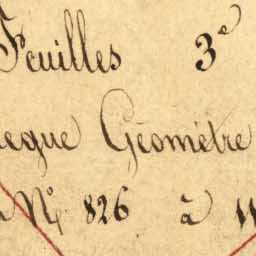 Feuilles 3e
Géomètre
Nº 826 à